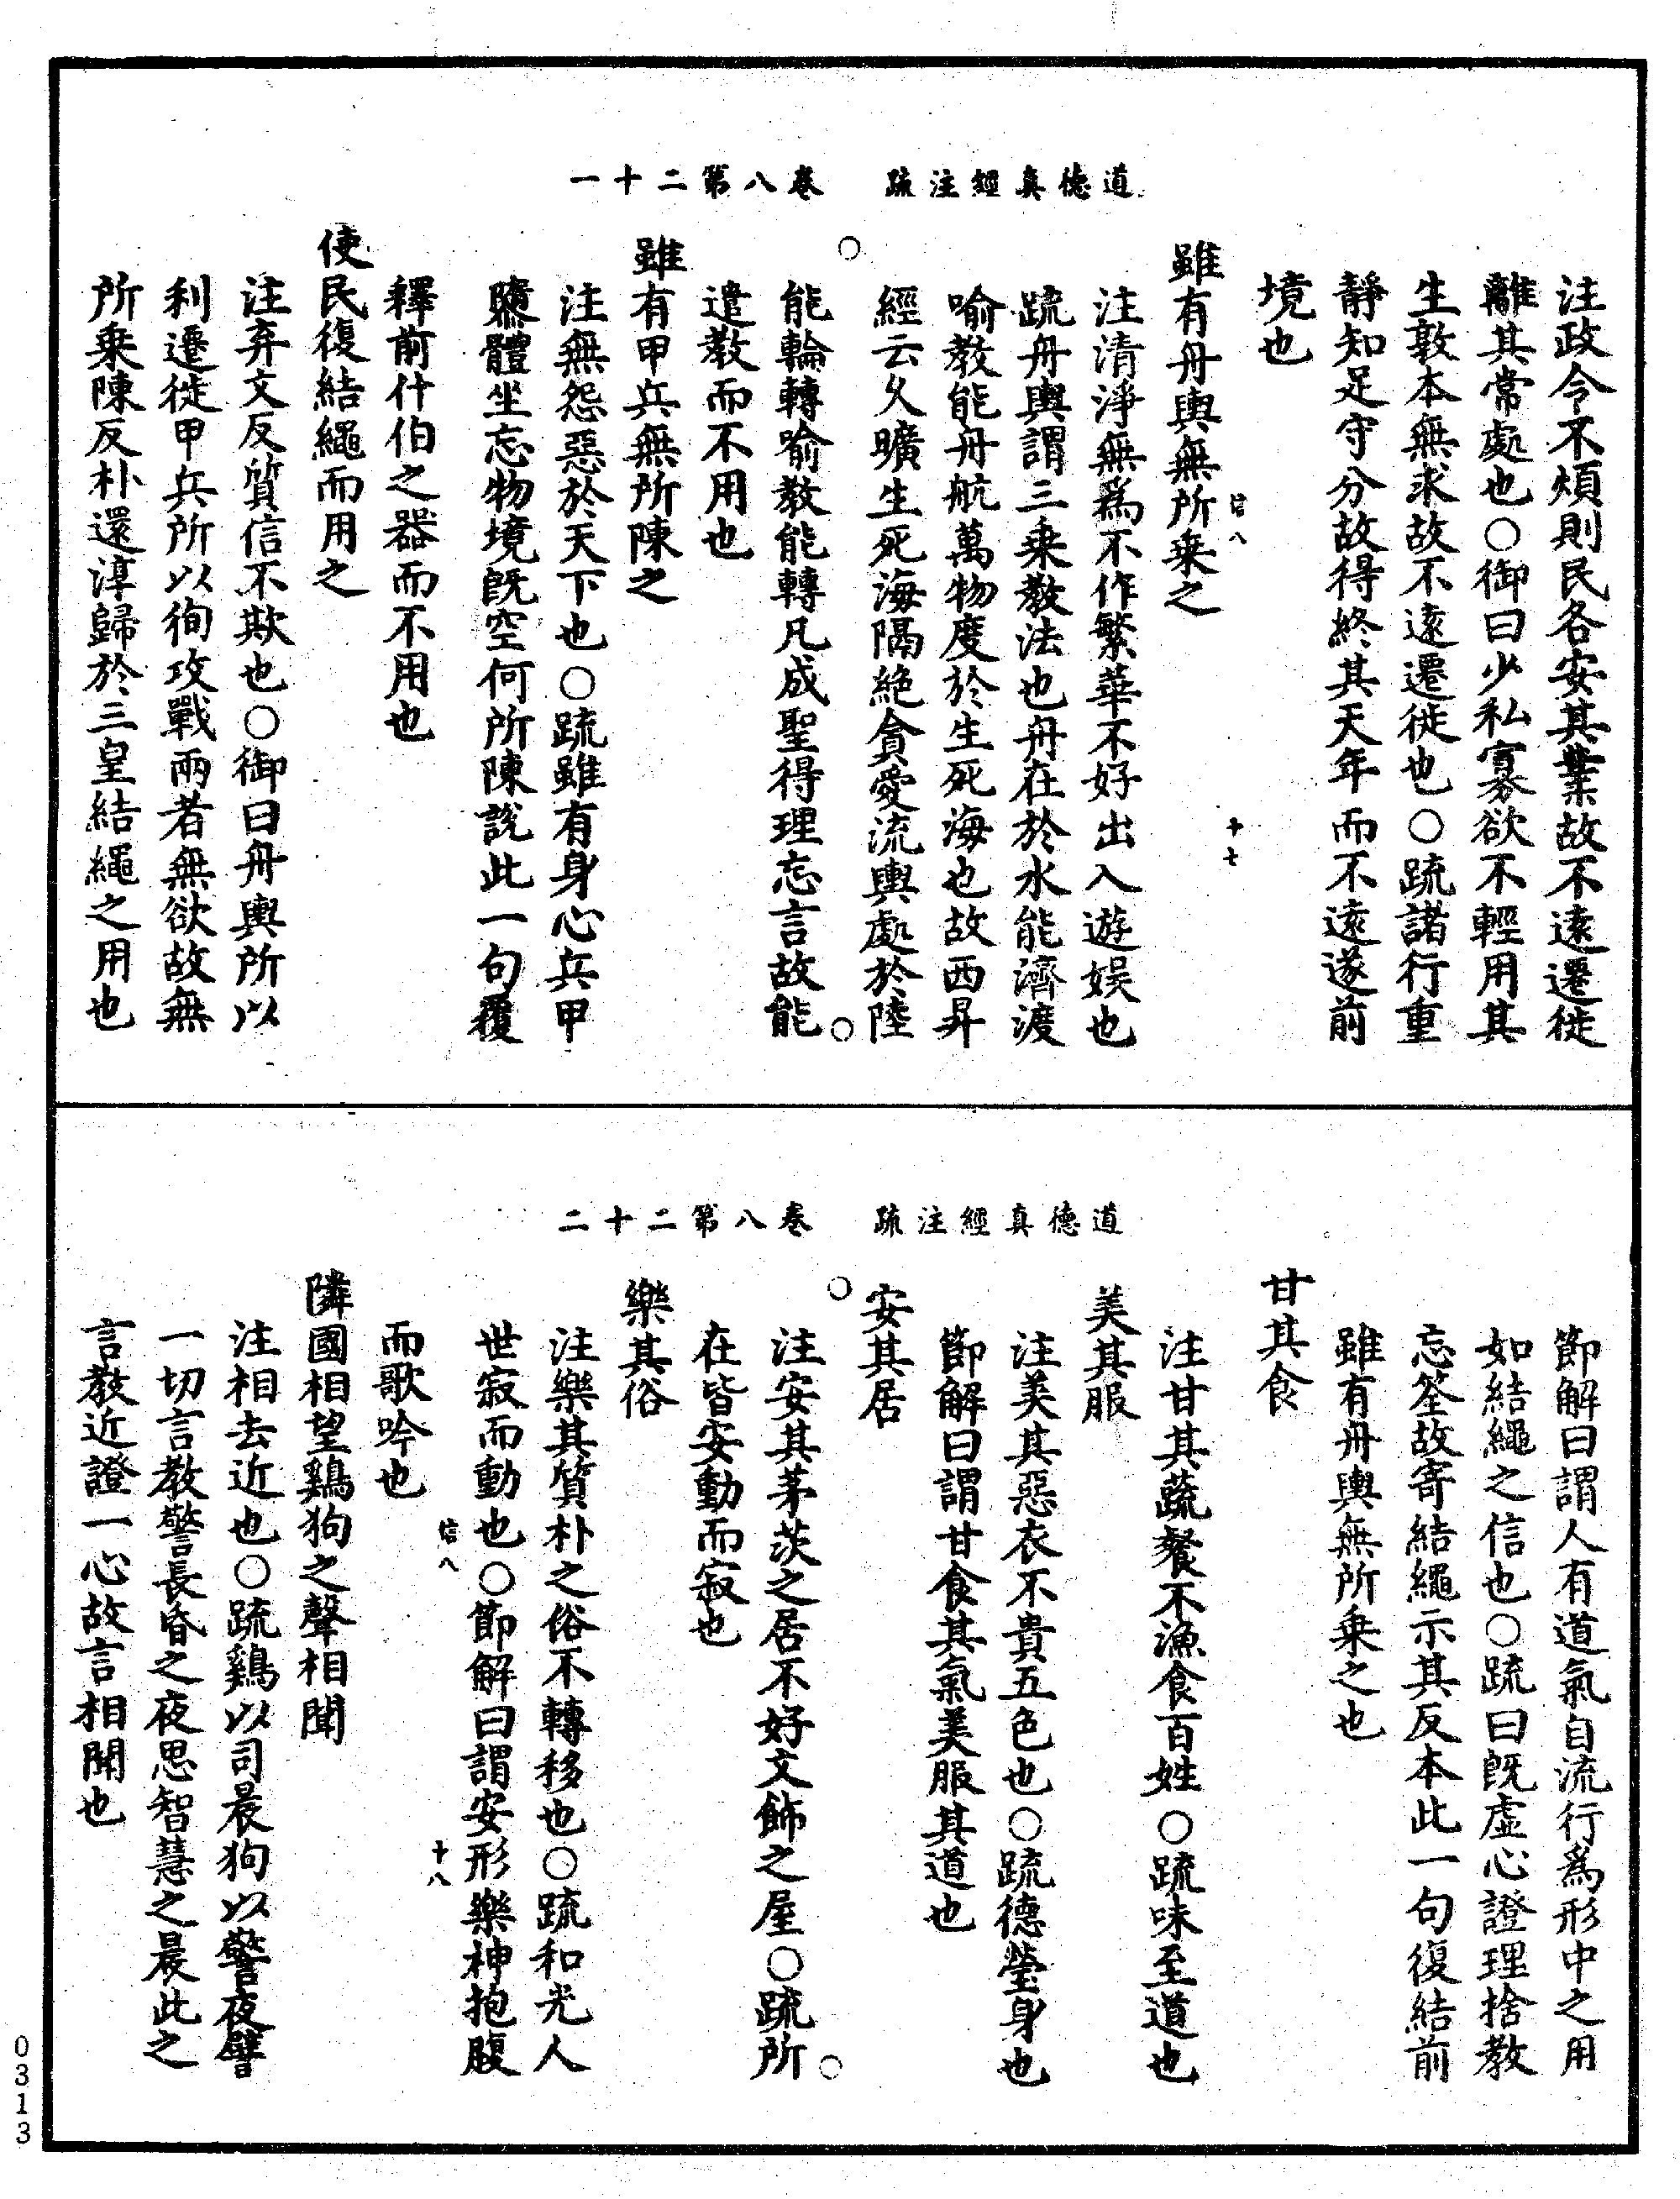 道德真經注疏　卷八第二十一
注政令不煩則民各安其業故不遠遷徙
離其常處也○御曰少私寡欲不輕用其
生敦本無求故不遠遷徙也○疏諸行重
靜知足守分故得終其天年而不遠遂前
境也
信八　十七
雖有舟輿無所乗之
注清淨無爲不作繁華不好出入遊娱也
疏舟輿謂三乗教法也舟在於水能濟渡
喻教能舟航萬物度於生死海也故西昇
經云乆曠生死海隔絶貪愛流輿處於陸
能輪轉喻教能轉凡成聖得理忘言故能
遣教而不用也
雖有甲兵無所陳之
注無怨惡於天下也○疏雖有身心兵甲
隳體坐忘物境旣空何所陳說此一句覆
釋前什伯之器而不用也
使民復結繩而用之
注弃文反質信不欺也○御曰舟輿所以
利遷徙甲兵所以徇攻戰兩者無欲故無
所乗陳反朴還淳歸於三皇結繩之用也
道德真經注疏　卷八第二十二
節解曰謂人有道氣自流行爲形中之用
如結繩之信也○疏曰旣虛心證理捨教
忘筌故寄結繩示其反本此一句復結前
雖有舟輿無所乗之也
甘其食
注甘其蔬餐不漁食百姓○疏味至道也
美其服
注美其惡衣不貴五色也○疏德瑩身也
節解曰謂甘食其氣美服其道也
安其居
注安其茅茨之居不好文飾之屋○疏所
在皆安動而寂也
樂其俗
注樂其質朴之俗不轉移也○疏和光人
世寂而動也○節解曰謂安形樂神抱腹
信八　十八
而歌吟也
隣國相望鷄狗之聲相聞
注相去近也○疏鷄以司晨狗以警夜譬
一切言教警長昏之夜思智慧之晨此之
言教近證一心故言相聞也
0313